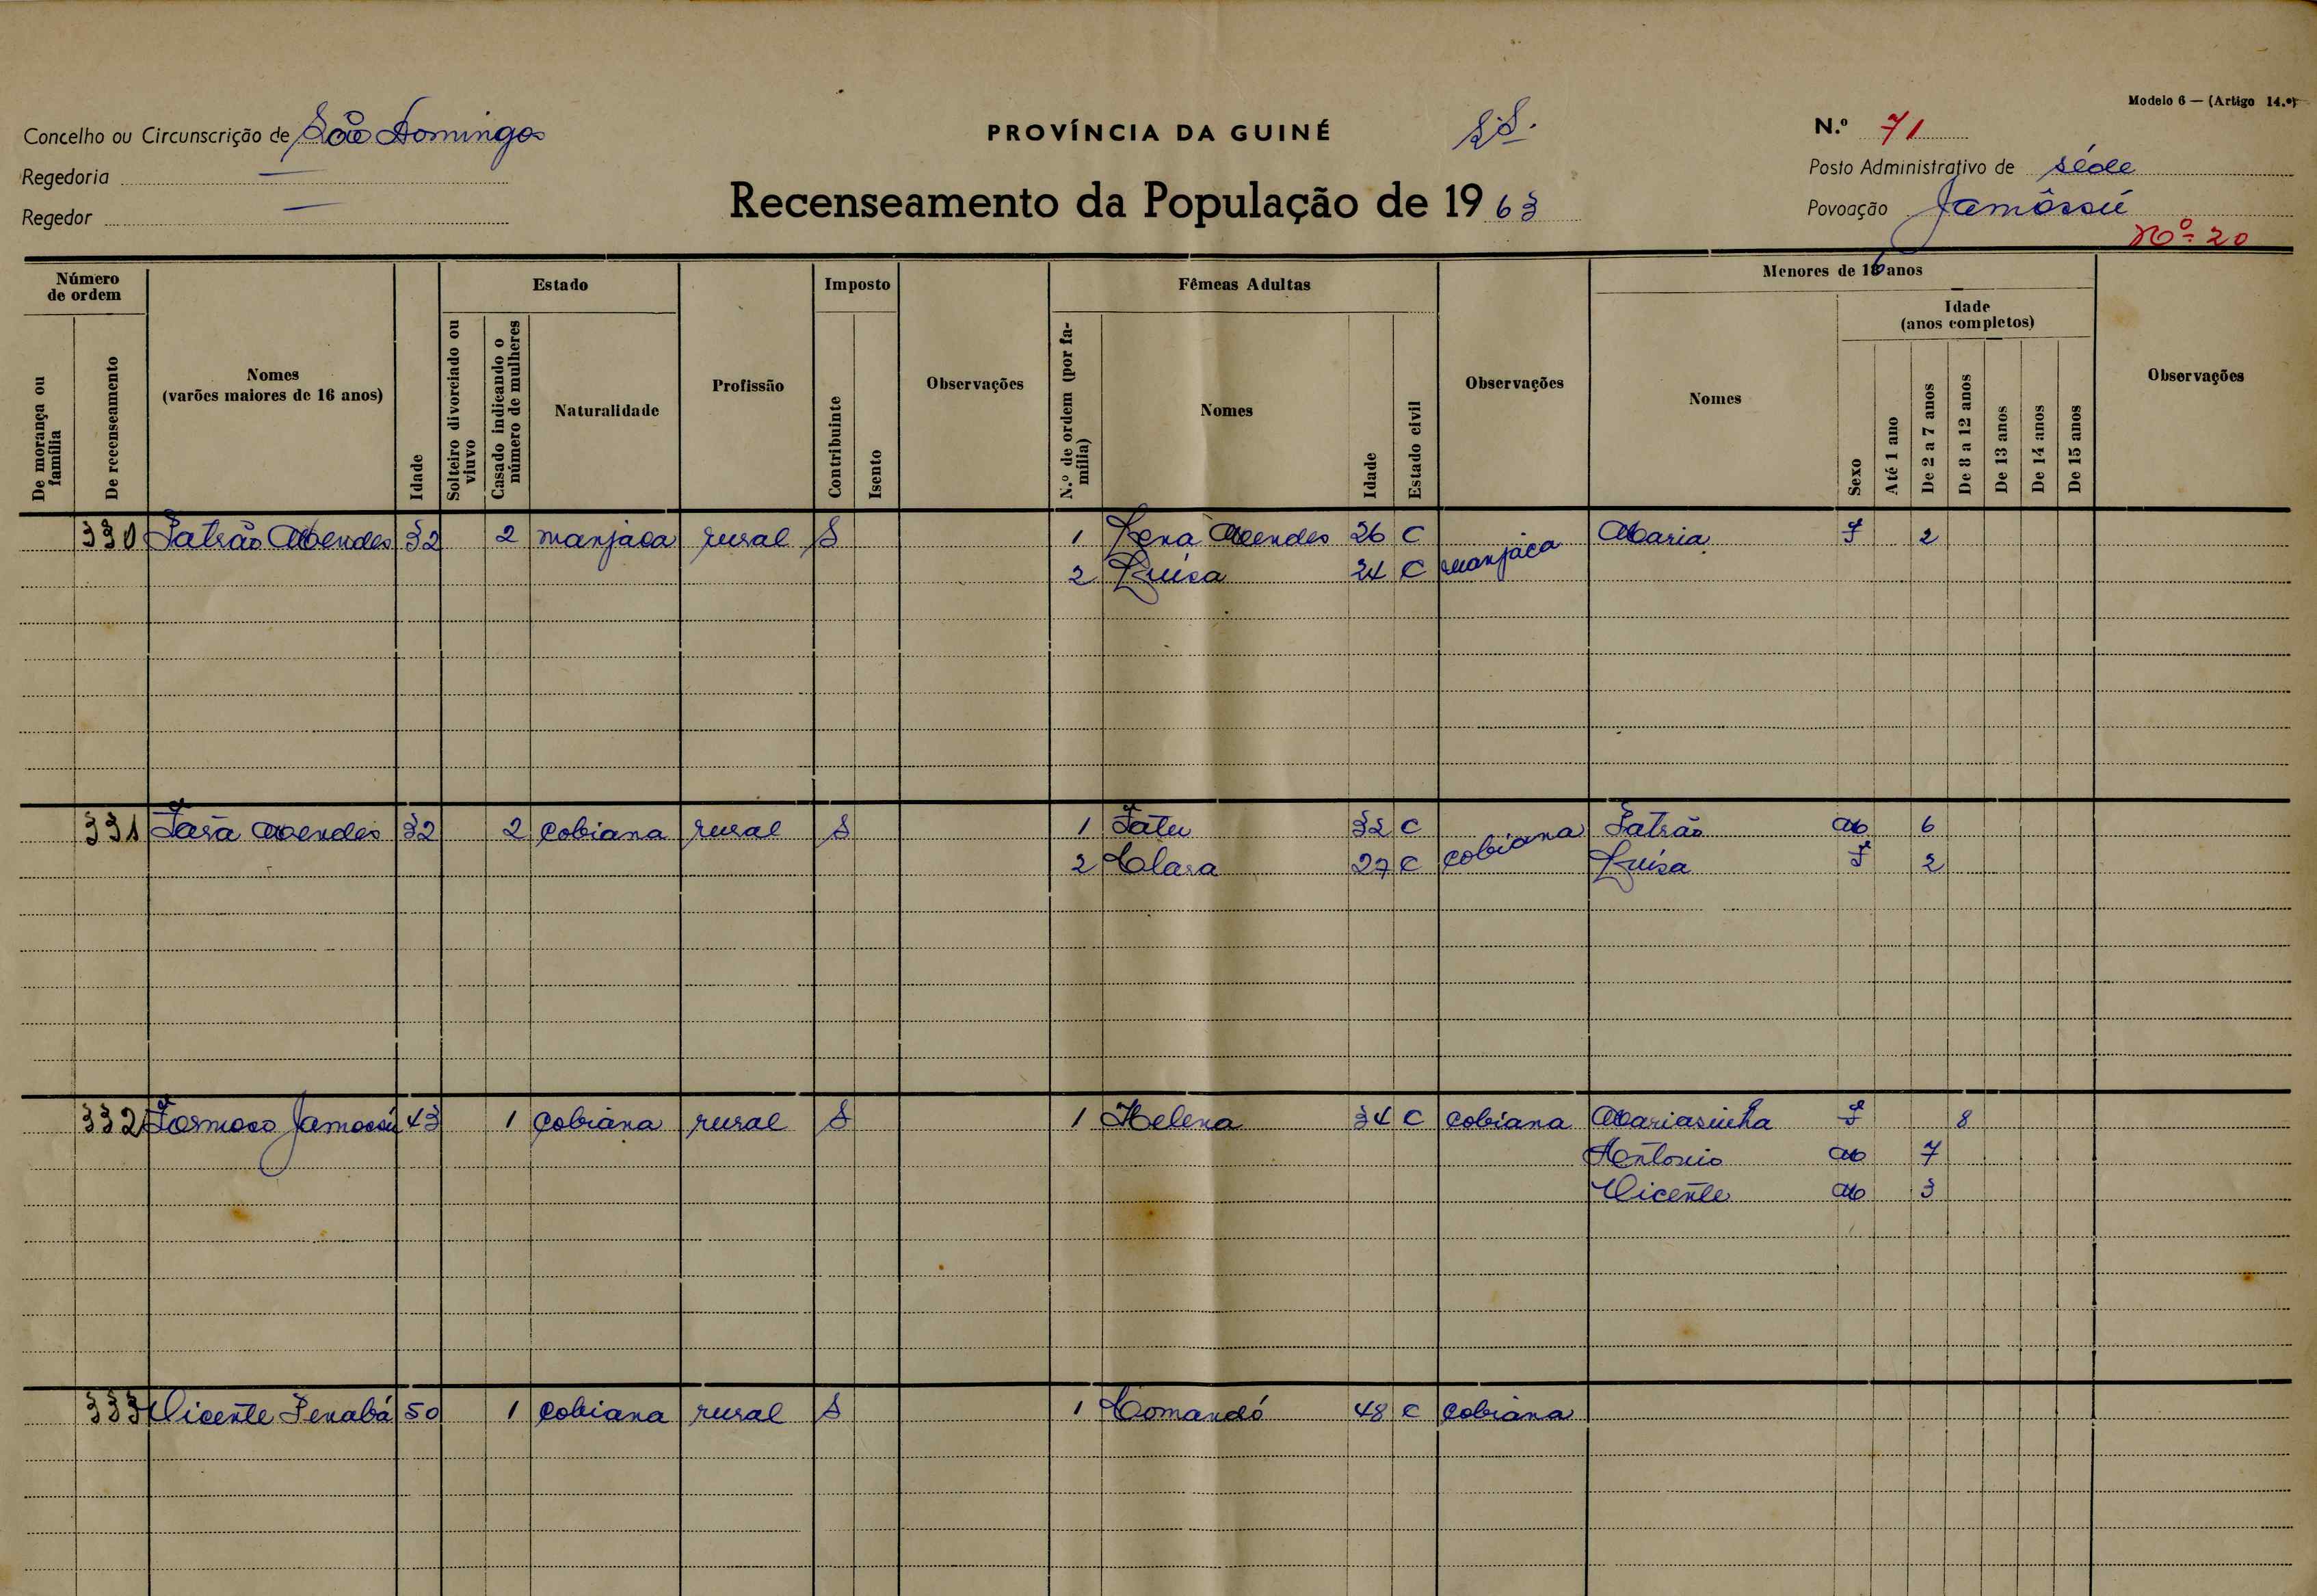 Modelo 6 — (Artigo 14.º)
Concelho ou Circunscrição de São Domingos
PROVÍNCIA DA GUINÉ
N.º 71
Regedoria —
Posto Administrativo de séde
Regedor —
Recenseamento da População de 1963
Povoação Jamôssú
Nº 20
Número de ordem
De morança ou família
De recenseamento
Nomes
(varões maiores de 16 anos)
Idade
Estado
Solteiro divorciado ou viuvo
Casado indicando o número de mulheres
Naturalidade
Profissão
Imposto
Contribuinte
Isento
Observações
Fêmeas Adultas
N.º de ordem (por família)
Nomes
Idade
Estado civil
Observações
Menores de 16 anos
Nomes
Sexo
Idade
(anos completos)
Até 1 ano
De 2 a 7 anos
De 8 a 12 anos
De 13 anos
De 14 anos
De 15 anos
Observações
330 Patrão Mendes 32 2 manjaca rural S 1 Lena Mendes 26 C manjaca Maria F 2
2 Luísa 24 C
331 Mendes 32 2 cobiana rural S 1 Fatu 32 C cobiana Patrão M 6
2 Clara 27 C Luísa F 2
332 Formoso Jamossú 43 1 cobiana rural S 1 Helena 34 C cobiana Mariasinha F 8
António M 7
Vicente M 3
333 Vicente Penabá 50 1 cobiana rural S 1 Comandó 48 C cobiana